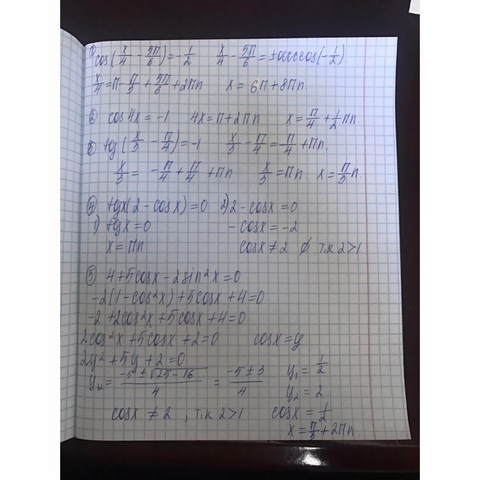 ① cos(x/4 - 5π/6) = -1/2   x/4 - 5π/6 = ±arccos(-1/2)
x/4 = π - π/3 + 5π/6 + 2πn   x = 6π + 8πn
② cos 4x = -1   4x = π + 2πn   x = π/4 + 1/2 πn.
③ tg(x/3 - π/4) = -1   x/3 - π/4 = -π/4 + πn.
x/3 = -π/4 + π/4 + πn   x/3 = πn   x = π/3 n.
④ tgx(2 - cosx) = 0   2) 2 - cosx = 0
1) tgx = 0   - cosx = -2
x = πn   cosx ≠ 2 ∅ т.к 2 > 1
⑤ 4 + 5cosx - 2sin²x = 0
-2(1 - cos²x) + 5cosx + 4 = 0
-2 + 2cos²x + 5cosx + 4 = 0
2cos²x + 5cosx + 2 = 0   cosx = y
2y² + 5y + 2 = 0
y₁,₂ = (-5 ± √25 - 16)/4 = (-5 ± 3)/4   y₁ = 1/2
y₂ = 2
cosx ≠ 2, т.к 2 > 1   cosx = 1/2
x = π/3 + 2πn